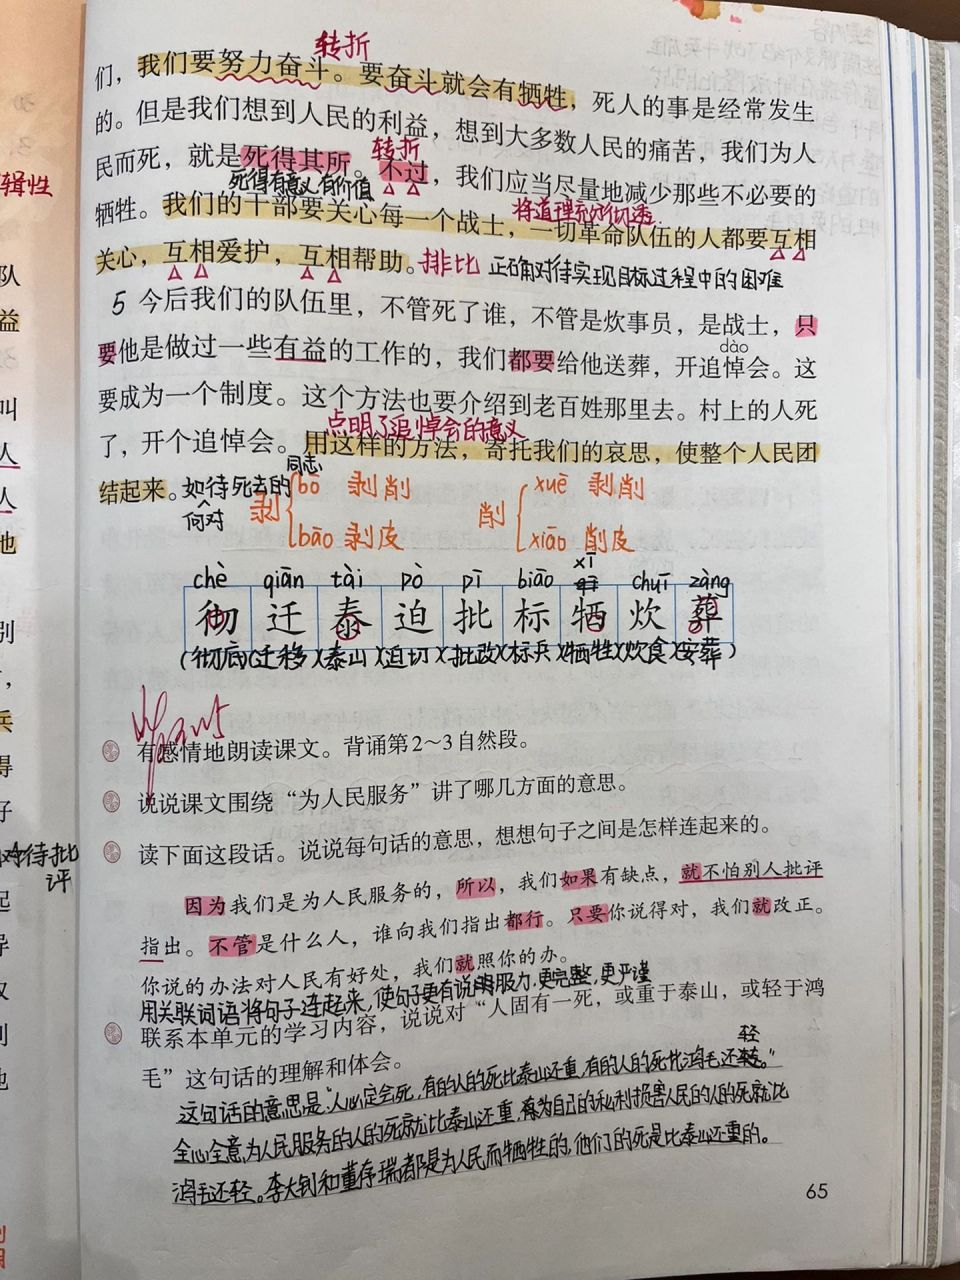 转折
们，我们要努力奋斗。要奋斗就会有牺牲，死人的事是经常发生
的。但是我们想到人民的利益，想到大多数人民的痛苦，我们为人
转折
民而死，就是死得其所。不过，我们应当尽量地减少那些不必要的
死得有意义有价值
牺牲。我们的干部要关心每一个战士，一切革命队伍的人都要互相
关心，互相爱护，互相帮助。排比 正确对待实现目标过程中的困难
5 今后我们的队伍里，不管死了谁，不管是炊事员，是战士，只
dào
要他是做过一些有益的工作的，我们都要给他送葬，开追悼会。这
要成为一个制度。这个方法也要介绍到老百姓那里去。村上的人死
点明了追悼会的意义
了，开个追悼会。用这样的方法，寄托我们的哀思，使整个人民团
同志
结起来。如待死去的
何对
剥 bō 剥削 bāo 剥皮
削 xuē 剥削 xiāo 削皮
chè qiān tài pò pī biāo xī chuī zàng
彻 迁 泰 迫 批 标 牺 炊 葬
(彻底)(迁移)(泰山)(迫切)(批改)(标兵)(牺牲)(炊食)(安葬)
有感情地朗读课文。背诵第2～3自然段。
说说课文围绕“为人民服务”讲了哪几方面的意思。
读下面这段话。说说每句话的意思，想想句子之间是怎样连起来的。
因为我们是为人民服务的，所以，我们如果有缺点，就不怕别人批评
指出。不管是什么人，谁向我们指出都行。只要你说得对，我们就改正。
你说的办法对人民有好处，我们就照你的办。
用关联词语将句子连起来，使句子更有说服力，更完整，更严谨
联系本单元的学习内容，说说对“人固有一死，或重于泰山，或轻于鸿
毛”这句话的理解和体会。
这句话的意思是“人必定会死，有的人的死比泰山还重，有的人的死比鸿毛还轻。”
全心全意为人民服务的人的死就比泰山还重，为自己的私利损害人民的人的死就比
鸿毛还轻。李大钊和董存瑞都是为人民而牺牲的，他们的死是比泰山还重的。
65
辑性
队
益
叫
人
人
地
别
兵
得
好
对待批
评
起
导